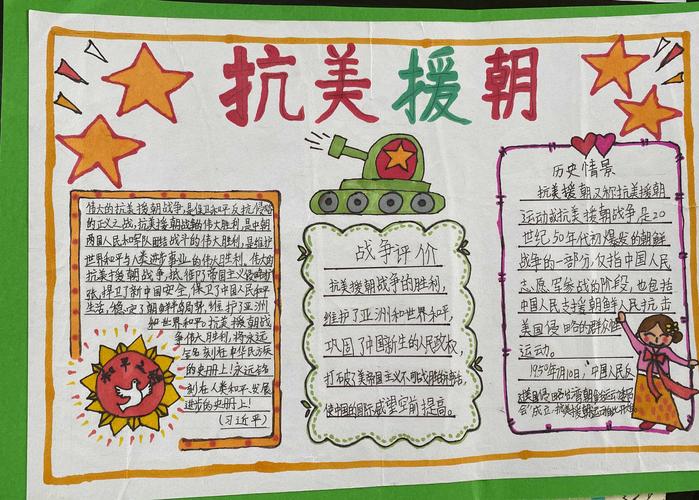 抗美援朝
伟大的抗美援朝战争,是保卫和平反抗侵略
的正义之战,抗美援朝战争的伟大胜利,是中朝
两国人民和军队团结战斗的伟大胜利,是维护
世界和平与人类进步事业的伟大胜利。伟大的
抗美援朝战争,抵御了帝国主义侵略扩
张,捍卫了新中国安全,保卫了中国人民和平
生活,稳定了朝鲜半岛局势,维护了亚洲
和世界和平。抗美援朝战
争伟大胜利,将永远
铭刻在中华民族
的史册上!永远铭
刻在人类和平、发展
进步的史册上!
(习近平)
和平之鸽
战争评价
抗美援朝战争的胜利,
维护了亚洲和世界和平,
巩固了中国新生的人民政权,
打破了美帝国主义不可战胜的神话,
使中国的国际威望空前提高。
历史情景
抗美援朝又称抗美援朝
运动或抗美援朝战争是20
世纪50年代初爆发的朝鲜
战争的一部分,仅指中国人民
志愿军参战的阶段,也包括
中国人民支援朝鲜人民抗击
美国侵略的群众性
运动。
1950年7月10日,中国人民反